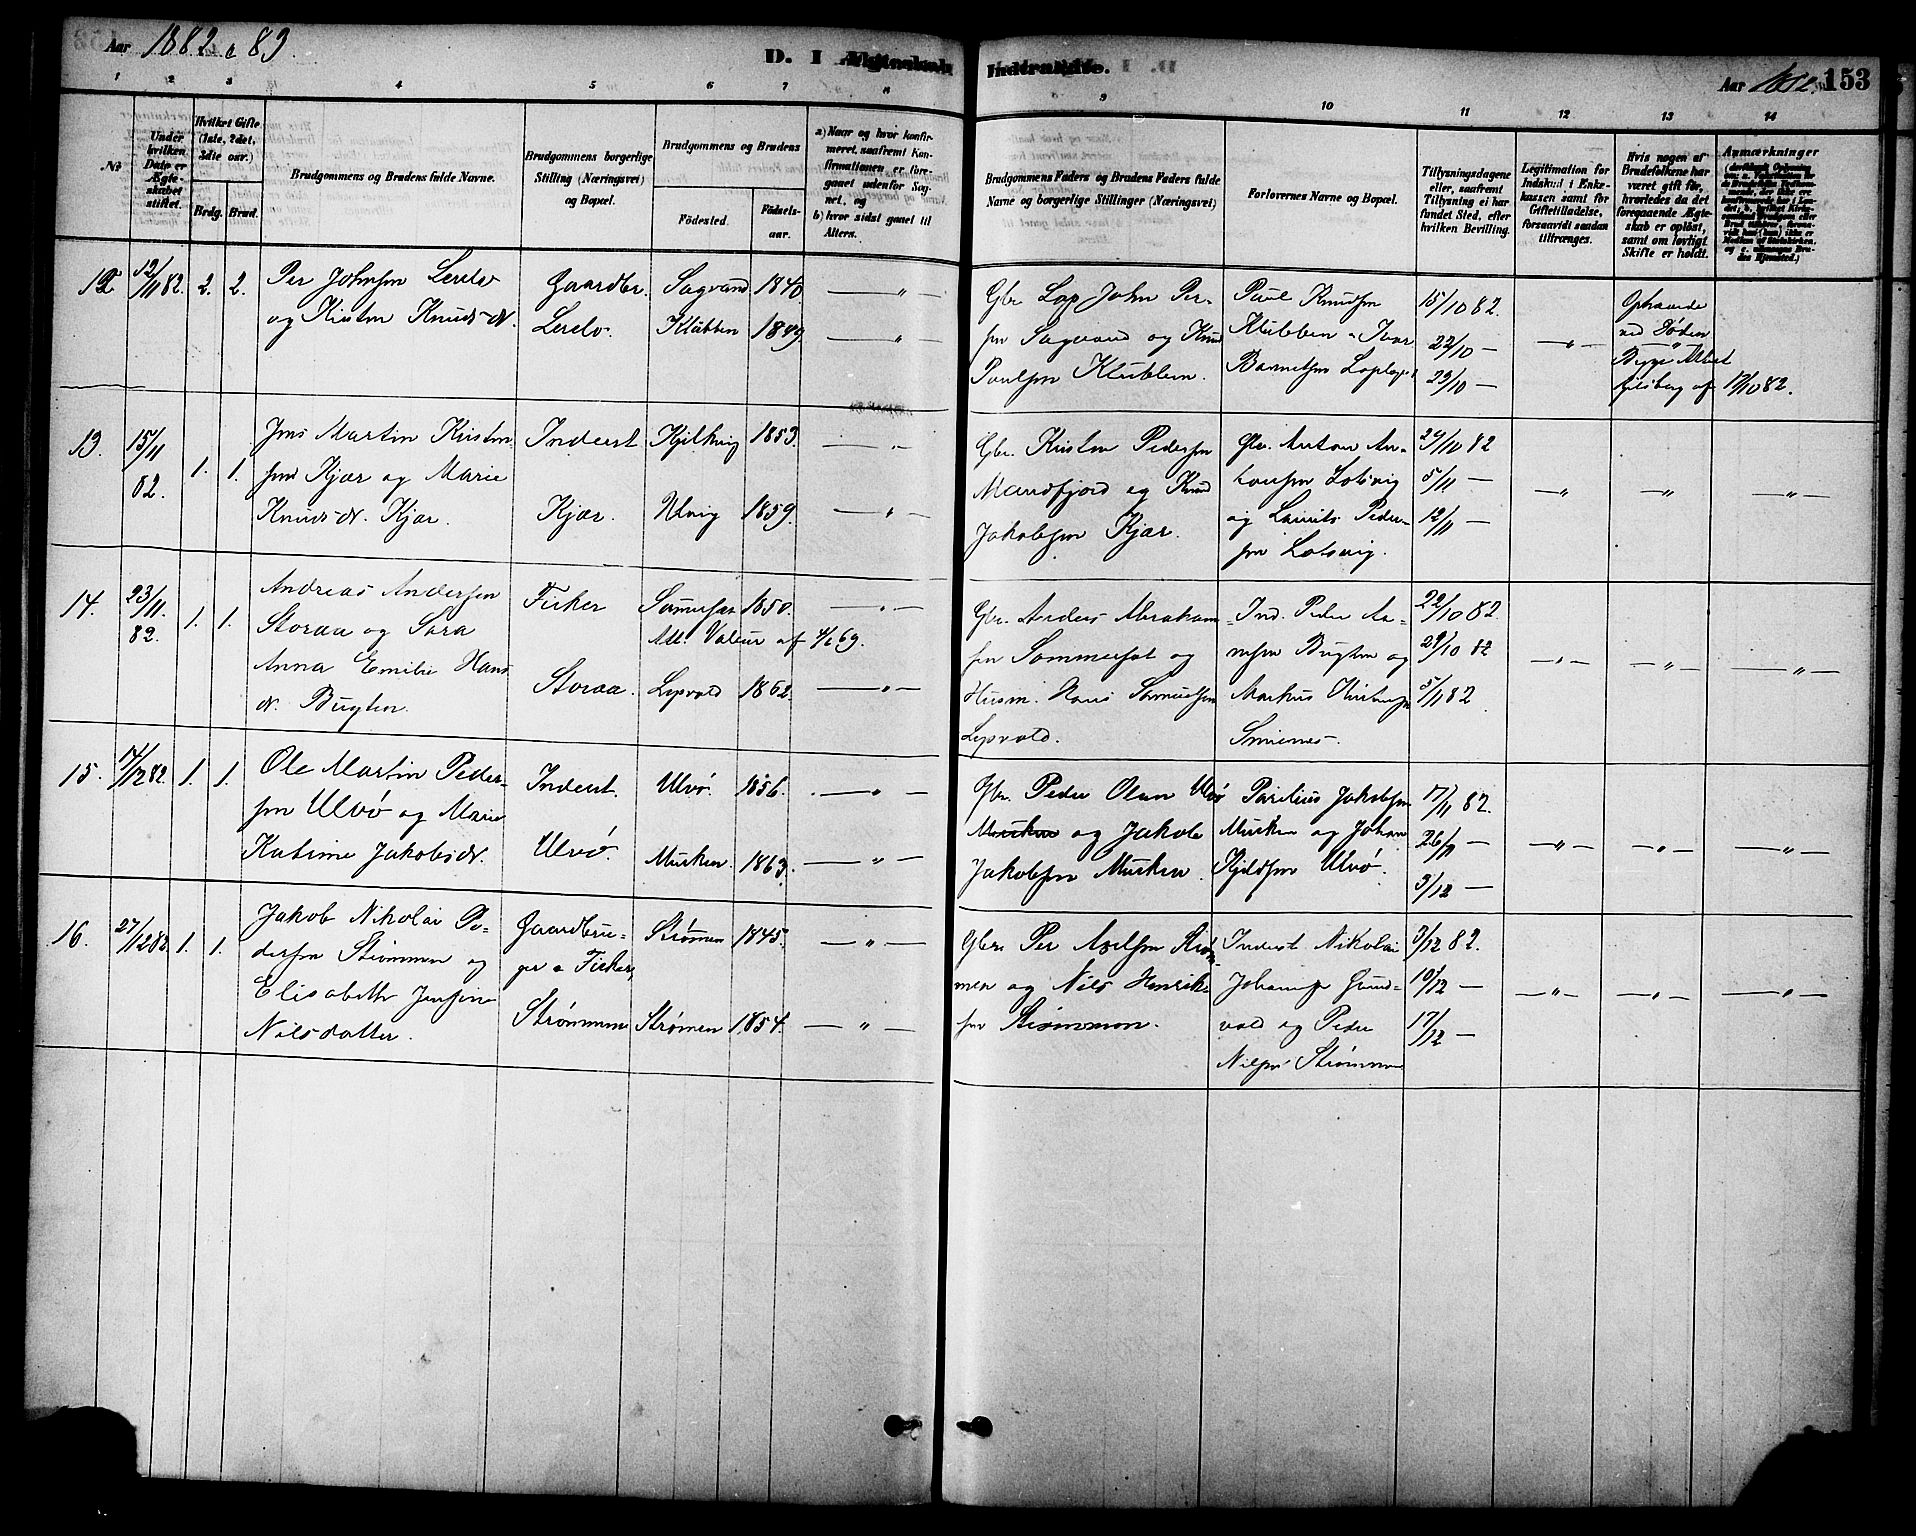 Aar 1882 & 83
D. I Ægteskab Indtraadte.
Aar 1882. 153
1 2 3 4 5 6 7 8 9 10 11 12 13 14
No
Under hvilken Dato er Ægteskabet stiftet.
Hvilket Gifte (1ste, 2det, 3die osv.)
Brdg. Brud.
Brudgommens og Brudens fulde Navne.
Brudgommens borgerlige Stilling (Næringsvei) og Bopæl.
Brudgommens og Brudens
Fødested.
Fødselsaar.
a) Naar og hvor konfirmeret, saafremt Konfirmationen er foregaaet udenfor Sognet, og
b) hvor sidst gaaet til Alters.
Brudgommens Faders og Brudens Faders fulde Navne og borgerlige Stillinger (Næringsvei)
Forlovernes Navne og Bopæl.
Tillysningsdagene eller, saafremt Tillysning ei har fundet Sted, efter hvilken Bevilling.
Legitimation for Indskud i Enkekassen samt for Giftetilladelse, forsaavidt saadan tiltrænges.
Hvis nogen af Brudefolkene har været gift før, hvorledes da det foregaaende Ægteskab er opløst, samt om lovligt Skifte er holdt.
Anmærkninger
12 12/11 82. 2. 2.
Per Johnsen
og Kirsten Knudsd.
Gaardbr.
Sagvand 1840
Klubben 1849
Gbr. Lap John Per-
sen Sagvand og Knud
Poulsen Klubben.
Paul Knudsen
Klubben & Ivar
15/10 82.
22/10 —
29/10 —
Ophævede
ved Døden
af 17/10 82.
13. 15/11 82. 1. 1.
Jens Martin Kristen
sen Kjær og Marie
Knudsd. Kjær.
Inderst
Kjær.
Kjilkvig 1853.
Ulvig 1859.
Gbr. Kristen Pedersen
Mandfjord og Knud
Jakobsen Kjær.
Gbr. Anton An-
tonsen Lotsvig
og Laurits Peder-
sen Lotsvig.
29/10 82
5/11 —
12/11 —
14. 23/11. 82. 1. 1.
Andreas Andersen
Storaa og Sara
Anna Emilie Hans
d. Bugten.
Fisker
Storaa.
Sommerset 1850.
Att. Valeur af 4/6 69.
Lopvold 1862.
Gbr. Anders Abraham
sen Sommerset og
Husm. Hans Samuelsen
Lopvold.
Ind. Peder Aa-
Bugten og
Markus
22/10 82.
29/10 82
5/11 82
15. 7/12 82. 1. 1.
Ole Martin Peder-
sen Ulvø og Marie
Katrine Jakobsd.
Inderst.
Ulvø.
Ulvø. 1856.
Musken. 1863.
Gbr. Peder Olsen Ulvø
Musken og Jakob
Jakobsen Musken.
Parelius Jakobsen
Musken og Johan
Kjeldsen Ulvø.
17/11 82.
26/11 —
3/12 —
16. 27/12 82. 1. 1.
Jakob Nikolai Pe-
dersen Strømmen og
Elisabeth Jensine
Nilsdatter.
Gaardbru-
ger & Fisker,
Strømmen
Strømen 1845.
Strømen 1854.
Gbr. Per Axelsen Strøm-
men og Nils Henrik-
sen Strømmen.
Inderst Nikolai
Johansen Grund-
vold og Peder
Nilsen Strømmen
3/12 82.
10/12 —
17/12 —